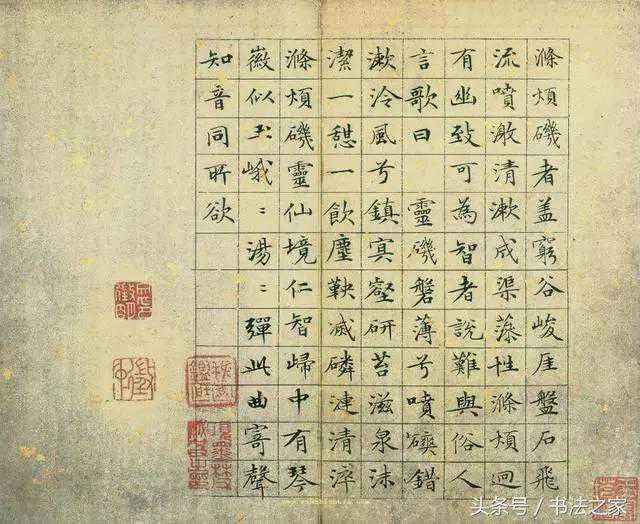 滌煩磯者盖窮谷峻厓盤石飛
流噴激清漱成渠蕩性滌煩迴
有幽致可為智者說難與俗人
言歌曰 靈磯磐薄兮噴礇錯
漱泠風兮鎮冥壑研苔滋泉沫
潔一憇一飲塵鞅滅磷漣清淬
滌煩磯靈仙境仁智歸中有琴
徽似玉峨〻湯〻彈此曲寄聲
知音同所欲
头条号 / 书法之家